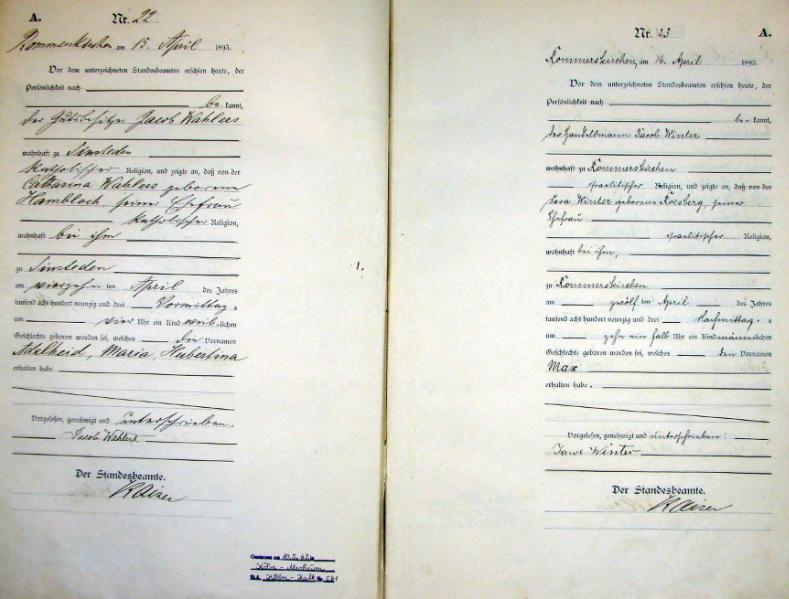 A.
Nr. 22
Rommerskirchen am 15. April 1893.
Vor dem unterzeichneten Standesbeamten erschien heute, der
Persönlichkeit nach
be kannt,
der Gutsbesitzer Jacob Wahlers
wohnhaft zu Sinsteden
katholischer Religion, und zeigte an, daß von der
Catharina Wahlers geborenen
Hambloch, seiner Ehefrau
katholischer Religion,
wohnhaft bei ihm
zu Sinsteden
am vierzehn ten April des Jahres
tausend acht hundert neunzig und drei Vormittag s
um vier Uhr ein Kind weib lichen
Geschlechts geboren worden sei, welches die Vornamen
Adelheid, Maria Hubertina
erhalten habe
Vorgelesen, genehmigt und unterschrieben
Jacob Wahlers
Der Standesbeamte.
Kaiser
10.5.62 in
Köln - Merheim
Köln - Kalk Nr 581
1.
Nr. 23
A.
Rommerskirchen, am 16. April 1893.
Vor dem unterzeichneten Standesbeamten erschien heute, der
Persönlichkeit nach
be kannt,
der Handelsmann Jacob Winter
wohnhaft zu Rommerskirchen
israelitischer Religion, und zeigte an, daß von der
Sara Winter geborene Roesberg, seiner
Ehefrau
israelitischer Religion,
wohnhaft bei ihm,
zu Rommerskirchen
am zwölf ten April des Jahres
tausend acht hundert neunzig und drei Nachmittag s
um zehn ein halb Uhr ein Kind männ lichen
Geschlechts geboren worden sei, welches den Vornamen
Max
erhalten habe.
Vorgelesen, genehmigt und unterschrieben:
Winter
Der Standesbeamte.
Kaiser